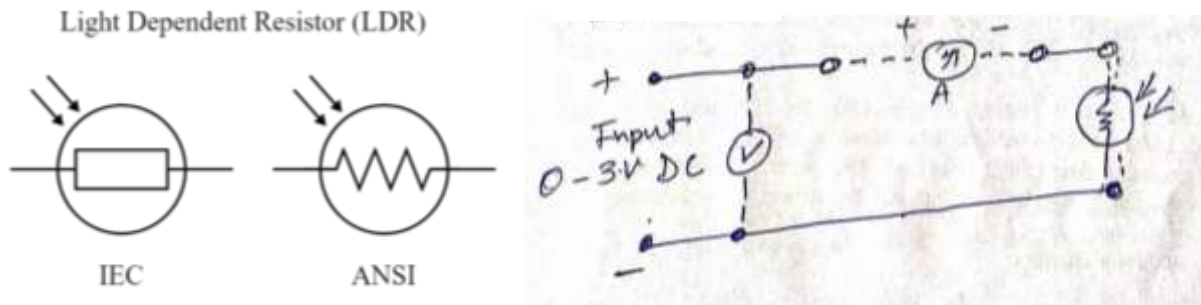 Light Dependent Resistor (LDR)
IEC
ANSI
+ -
+
A
Input
V
0-3V DC
-